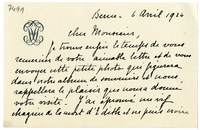 7491
Berne - 6 Avril 1924
cher Monsieur,
Je trouve enfin le temps de vous
remercier de votre aimable lettre et de vous
envoyer cette petite photo qui figurera
dans votre album de souvenirs et vous
rappellera le plaisir que nous a donné
votre visite. J'ai éprouvé un vif
chagrin de la mort d'Edith et ne puis